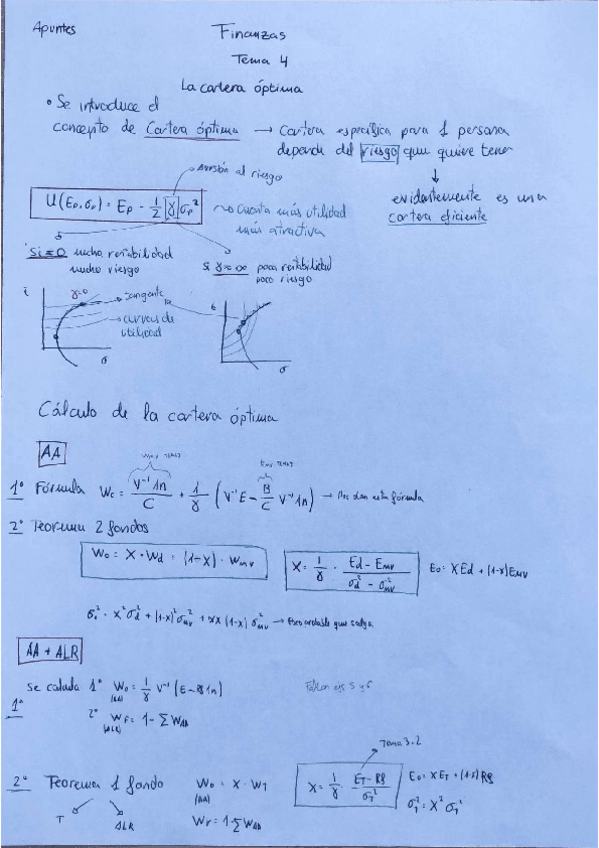 Apuntes
Finanzas
Tema 4
La cartera óptima
• Se introduce el
concepto de Cartera óptima → Cartera específica para 1 persona
depende del riesgo que quiere tener
↓
evidentemente es una
cartera eficiente
Aversión al riesgo
U(Ep,σp) = Ep - 1/2 γ σp² ~> Cuanta más utilidad
más atractiva
Si = 0 mucha rentabilidad
mucho riesgo
Si γ = ∞ poca rentabilidad
poco riesgo
γ=0
tangente
curvas de
utilidad
σ
σ
Cálculo de la cartera óptima
AA
1º Fórmula Wc = V⁻¹ 1n / C + 1/γ (V⁻¹E - B/C V⁻¹ 1n) → Nos dan esta fórmula
2º Teorema 2 fondos
Wo = X · Wd = (1-X) · Wmv
X = 1/γ · Ed - Emv / σd² - σmv²
Eo = XEd + (1-X)Emv
σo² = X²σd² + (1-X)²σmv² + 2X(1-X)σmv² → Poco probable que salga
AA + ALR
1º Se calcula 1º Wo = 1/γ V⁻¹ (E - Rf 1n)
(AA)
Faltan ejs 5 y 6
2º WF = 1 - Σ WAA
(ALR)
Tema 3.2
2º Teorema 1 fondo
T
ALR
Wo = X · WT
(AA)
WF = 1 - Σ WAA
X = 1/γ · ET - Rf / σT²
Eo = XET + (1-X)Rf
σ² = X² σT²